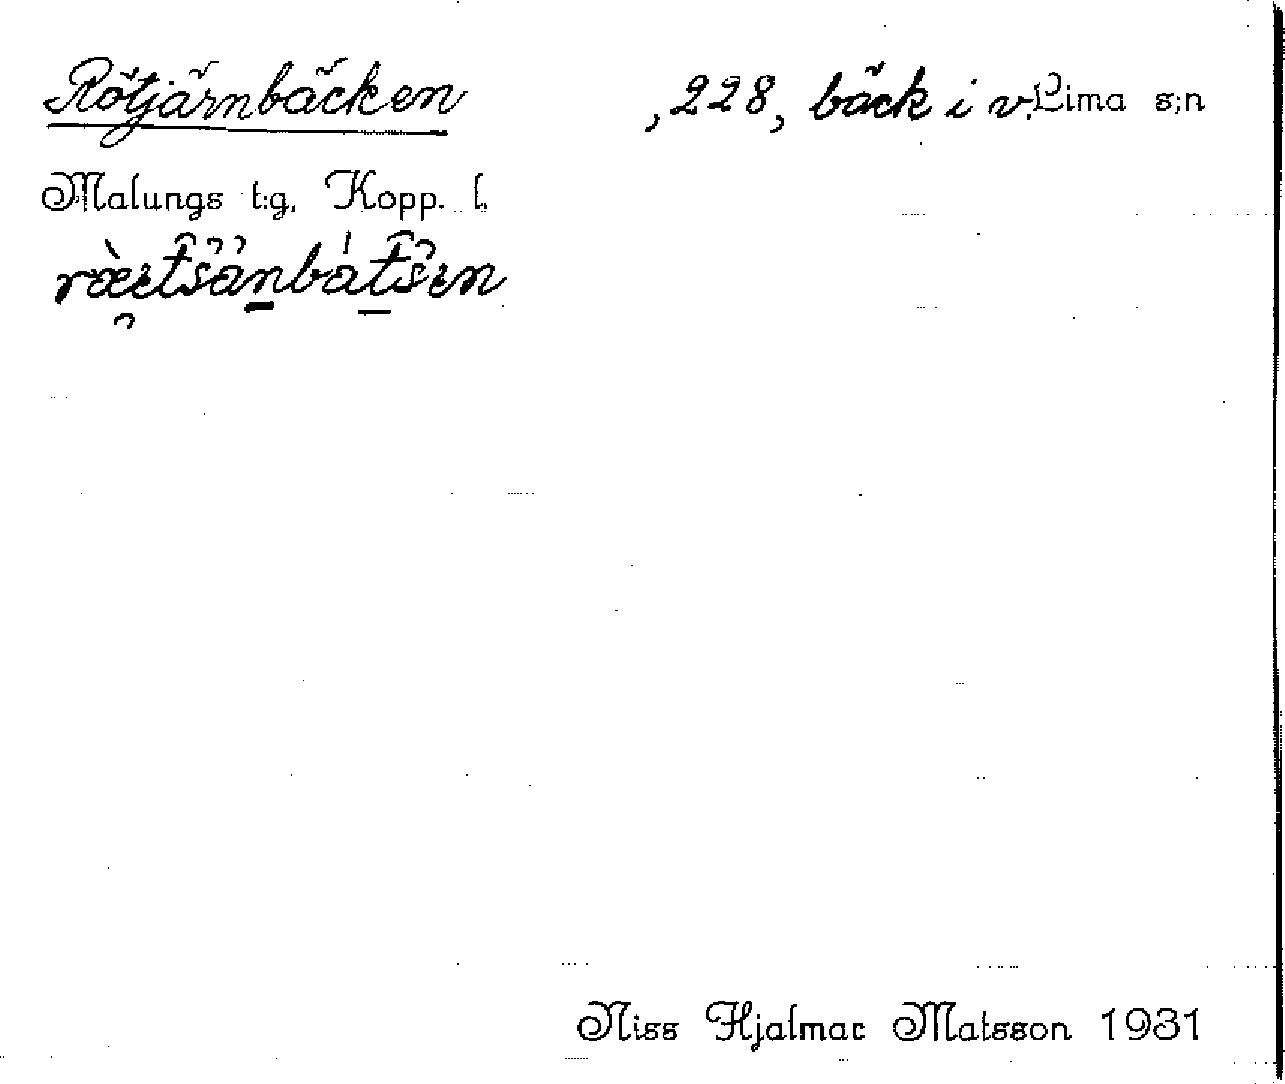 Rötjärnbäcken ,228, bäck i v. Lima s:n
Malungs t:g, Kopp. l.
Niss Hjalmar Matsson 1931